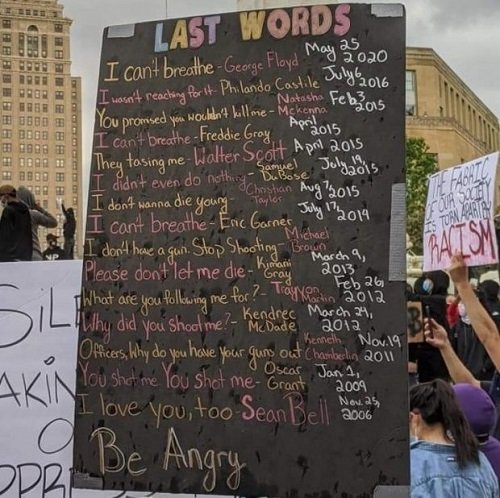 LAST WORDS
I can't breathe - George Floyd May 25 2020
I wasn't reaching for it - Philando Castile July 6 2016
You promised you wouldn't kill me - Natasha Mckenna Feb 3, 2015
I can't breathe - Freddie Gray April 2015
They tasing me - Walter Scott April 2015
I didn't even do nothing - Samuel DuBose July 19, 2015
I don't wanna die young - Christian Taylor Aug 7, 2015
I can't breathe - Eric Garner July 17, 2014
I don't have a gun. Stop Shooting - Michael Brown
Please don't let me die - Kimani Gray March 9, 2013
What are you following me for? - Trayvon Martin Feb 26, 2012
Why did you shoot me? - Kendrec McDade March 24, 2012
Officers, Why do you have your guns out Kenneth Chamberlin Nov. 19 2011
You shot me You shot me - Oscar Grant Jan 1, 2009
I love you, too - Sean Bell Nov. 25, 2006
Be Angry
THE FABRIC
OF OUR SOCIETY
IS TORN APART BY
RACISM
SIL
AKIN
O
PPRE